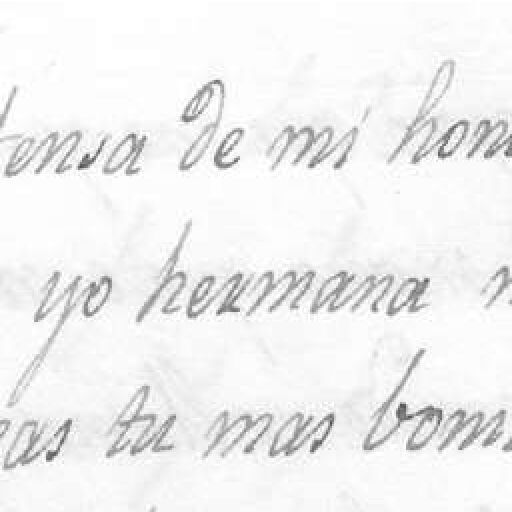 tensa de mi hon
yo hermana
eas tu mas bom